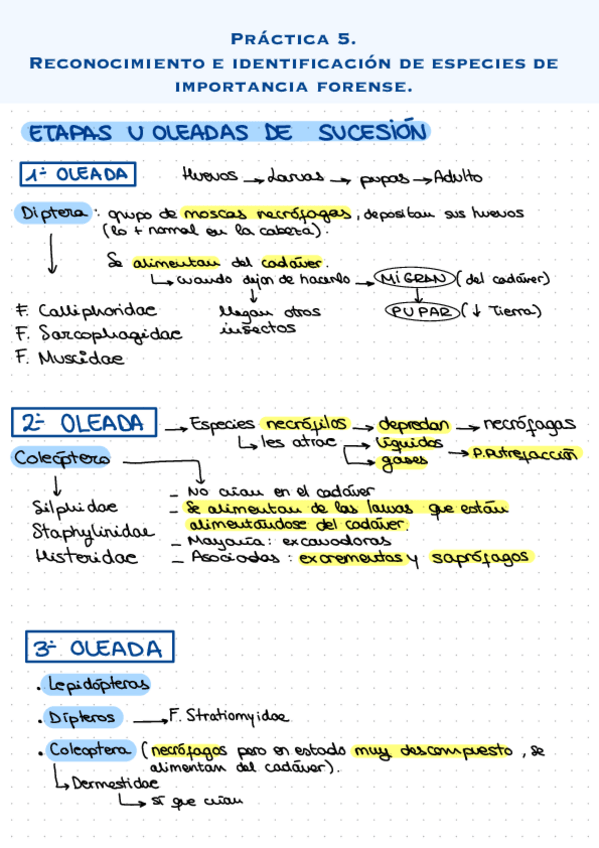 PRÁCTICA 5.
RECONOCIMIENTO E IDENTIFICACIÓN DE ESPECIES DE
IMPORTANCIA FORENSE.
ETAPAS U OLEADAS DE SUCESIÓN
1ª OLEADA
Huevos → Larvas → pupas → Adulto
Díptera : grupo de moscas necrófagas, depositan sus huevos
(lo + normal en la cabeza).
Se alimentan del cadáver.
↳ cuando dejan de hacerlo → MIGRAN (del cadáver)
F. Calliphoridae llegan otros PUPAR (↓ Tierra)
F. Sarcophagidae insectos
F. Muscidae
2ª OLEADA → Especies necrófilos → depredan → necrófagas
↳ les atrae líquidos → P. Putrefacción
Coleóptero gases
- No crian en el cadáver
Silphidae - Se alimentan de las larvas que están
Staphylinidae alimentándose del cadáver.
- Mayoría : excavadoras
Histeridae - Asociadas : excrementos y saprófagos
3ª OLEADA
. Lepidópteros
. Dípteros → F. Stratiomyidae
. Coleoptera (necrófagos pero en estado muy descompuesto, se
alimentan del cadáver).
↳ Dermestidae
↳ sí que crian